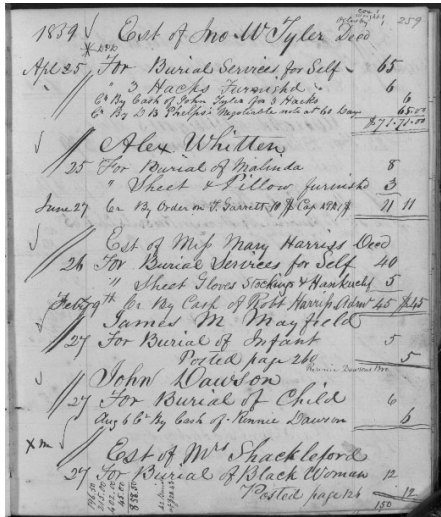 259
1839 Est of Jno W Tyler Decd
Apl 25 For Burial Services for Self 65
" 3 Hacks Furnishd 6
Cr By Cash of John Tyler for 3 Hacks 6
Cr By D B Phelps Negotiable note at 60 Days 65.00
$71.71.00
Alex Whitten
25 For Burial of Malinda 8
" Sheet & Pillow furnishd 3
June 27 Cr By Order on T. Garrett 10 $ Cap 1 $ 11 11
Est of Miss Mary Harriss Decd
26 For Burial Services for Self 40
" Sheet Gloves Stockings & Hankerchf 5
Feby 9th Cr By Cash of Robt Harriss Admr 45 $45
James M Mayfield
27 For Burial of Infant 5
Posted page 260 5
John Dawson
27 For Burial of Child 6
Aug 6 Cr By Cash of Rinnie Dawson 6
X m Est of Mrs Shackleford
27 For Burial of Black Woman 12
Posted page 124 12
150
196.50
215.00
402.00
45.00
858.50